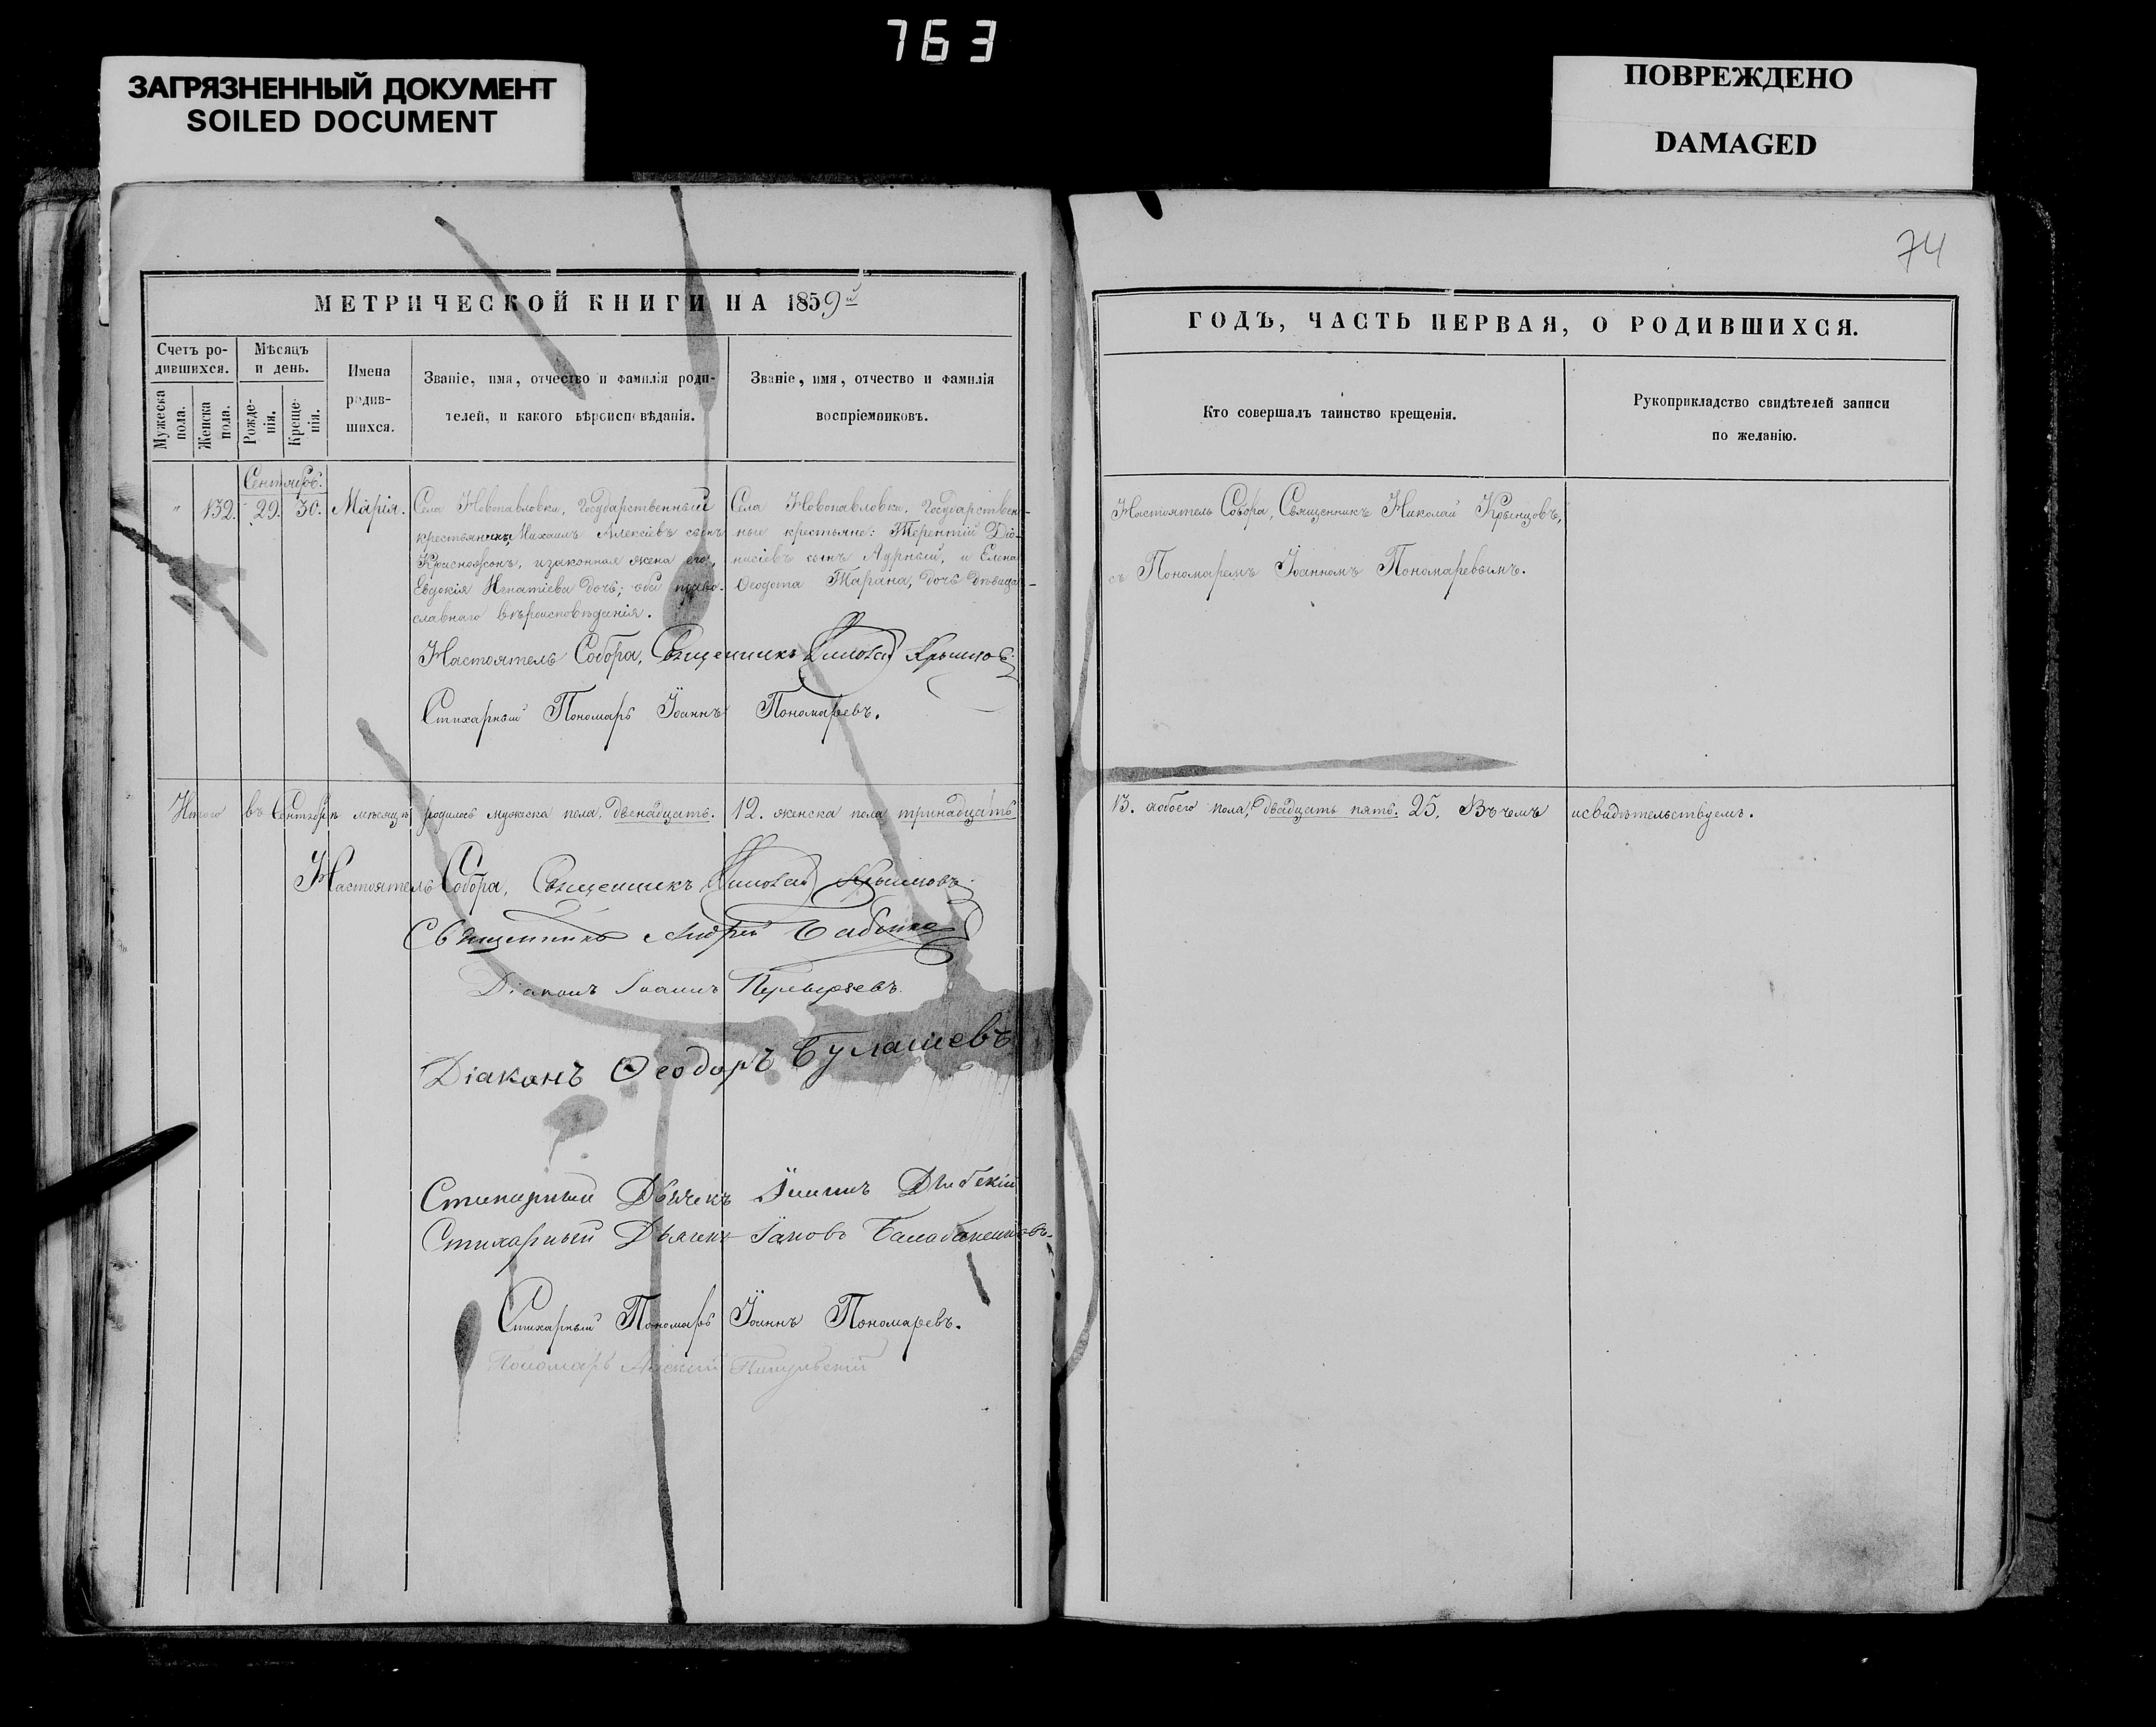 763
ЗАГРЯЗНЕННЫЙ ДОКУМЕНТ
SOILED DOCUMENT
ПОВРЕЖДЕНО
DAMAGED
74
МЕТРИЧЕСКОЙ КНИГИ НА 1859й
Счетъ ро-
дившихся.
Мужеска
пола.
Женска
пола.
Мѣсяцъ
и день.
Рожде-
нія.
Креще-
нія.
Имена
родив-
шихся.
Званіе, имя, отчество и фамилія роди-
телей, и какого вѣроисповѣданія.
Званіе, имя, отчество и фамилія
воспріемниковъ.
Сентябрь.
" 132. 29. 30. Марія.
Села Новопавловки, Государственный
крестьянинъ Михаилъ Алексѣевъ сынъ
изаконная жена его,
Евдокія Игнатіева дочь; оба право-
славнаго вѣроисповѣданія.
Села Новопавловки, Государствен-
ные крестьяне: Терентій Діо-
нисіевъ сынъ и Елена
Ѳеодота Тарана, дочь дѣвица
Настоятель Собора, Священникъ Николай
Стихарный Пономарь Іоаннъ Пономаревъ.
Итого въ Сентябрѣ мѣсяцѣ родилось мужеска пола, двенадцать. 12. женска пола тринадцать
Настоятель Собора, Священникъ Николай
Священникъ Андрей
Діаконъ Іоаннъ
Діаконъ Ѳеодоръ Булашевъ
Стихарный Дьячекъ Іоаннъ
Стихарный Дьячекъ Іаковъ
Стихарный Пономарь Іоаннъ Пономаревъ.
Пономарь
ГОДЪ, ЧАСТЬ ПЕРВАЯ, О РОДИВШИХСЯ.
Кто совершалъ таинство крещенія.
Рукоприкладство свидѣтелей записи
по желанію.
Настоятель Собора, Священникъ Николай
съ Пономаремъ Іоанномъ Пономаревымъ.
13. аобоего пола, двадцать пять. 25. Въ чемъ исвидѣтельствуемъ.